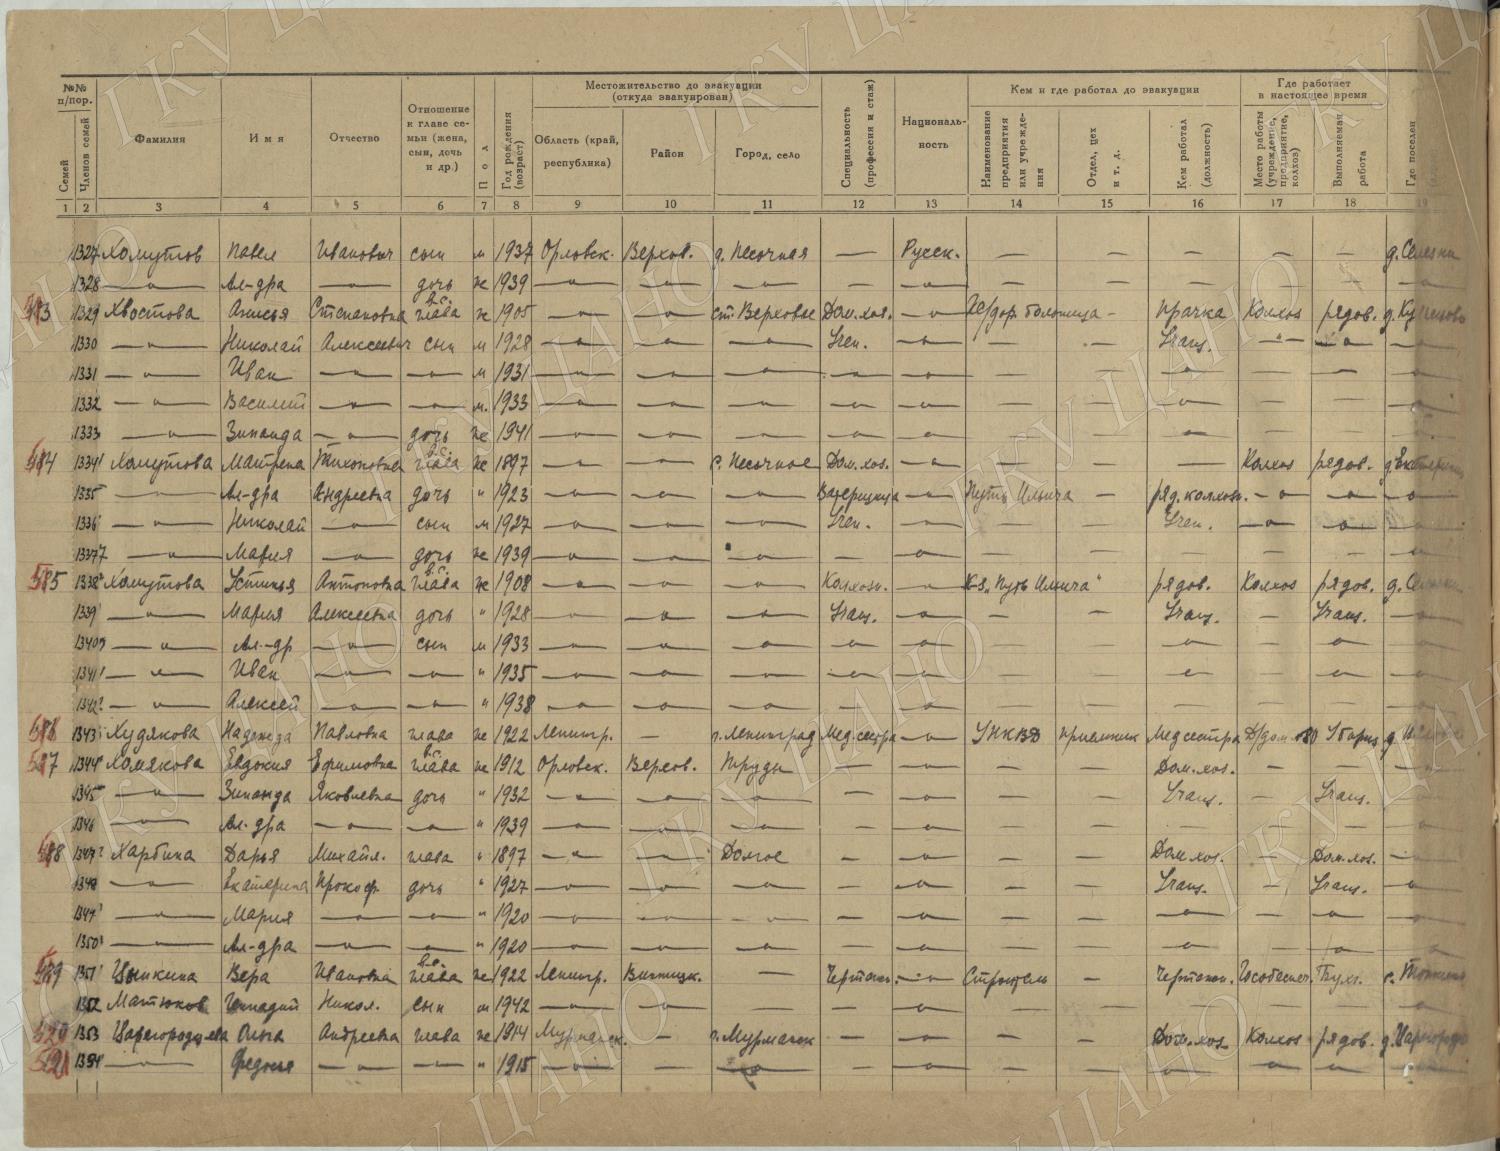 №№ п/пор.
Семей
Членов семей
Фамилия
Имя
Отчество
Отношение к главе семьи (жена, сын, дочь и др.)
Пол
Год рождения (возраст)
Местожительство до эвакуации (откуда эвакуирован)
Область (край, республика)
Район
Город, село
Специальность (профессия и стаж)
Националь-ность
Кем и где работал до эвакуации
Наименование предприятия или учрежде-ния
Отдел, цех и т. д.
Кем работал (должность)
Где работает в настоящее время
Место работы (учреждение, предприятие, колхоз)
Выполняемая работа
Где поселен
1 2 3 4 5 6 7 8 9 10 11 12 13 14 15 16 17 18 19
1327 Хомутов Павел Иванович сын м 1937 Орловск. Верхов. д. Песочная — Русск. — — — — — д.
1328 —〃— Ал-дра —〃— дочь ж 1939 —〃— —〃— —〃— — —〃— — — — — —
583 1329 Хвостова Анисья Степановна в.с. глава ж 1905 —〃— —〃— ст. Верховье Дом. хоз. —〃— Жел/дор. больница — прачка Колхоз рядов. д.
1330 —〃— Николай Алексеевич сын м 1928 —〃— —〃— —〃— Учен. —〃— — — Учащ. —〃— —〃— —〃—
1331 —〃— Иван —〃— —〃— м 1931 —〃— —〃— —〃— —〃— —〃— — — —〃— — — —〃—
1332 —〃— Василий —〃— —〃— м. 1933 —〃— —〃— —〃— —〃— —〃— — — —〃— — — —〃—
1333 —〃— Зинаида —〃— дочь ж 1941 —〃— —〃— —〃— —〃— —〃— — — —〃— — — —〃—
584 1334 Хомутова Матрена Тихоновна в.с. глава ж 1897 —〃— —〃— с. Песочное Дом. хоз. —〃— — — — Колхоз рядов. д.
1335 —〃— Ал-дра Андреевна дочь 〃 1923 —〃— —〃— —〃— —〃— Путь Ильича — ряд. колхоз. —〃— —〃— —〃—
1336 —〃— Николай —〃— сын м 1927 —〃— —〃— —〃— Учен. —〃— — — Учен. —〃— —〃— —〃—
1337 —〃— Мария —〃— дочь ж 1939 —〃— —〃— — —〃— — — — — — —〃—
585 1338 Хомутова Устинья Антоновна в.с. глава ж 1908 —〃— —〃— —〃— Колхозн. —〃— К-з „Путь Ильича“ рядов. Колхоз рядов. д.
1339 —〃— Мария Алексеевна дочь 〃 1928 —〃— —〃— —〃— Учащ. —〃— — — Учащ. — Учащ. —〃—
1340 —〃— Ал-др —〃— сын м 1933 —〃— —〃— —〃— —〃— —〃— — — —〃— — —〃— —〃—
1341 —〃— Иван —〃— —〃— 〃 1935 —〃— —〃— —〃— —〃— —〃— — — —〃— — —〃— —〃—
1342 —〃— Алексей —〃— —〃— 〃 1938 —〃— —〃— —〃— — —〃— — — — — — —〃—
586 1343 Худякова Надежда Павловна глава ж 1922 Ленингр. — г. Ленинград Медсестра —〃— УНКВД приемник Медсестра Д/дом Уборщ. д.
587 1344 Хомякова Евдокия Ефимовна в.с. глава ж 1912 Орловск. Верхов. Труды — —〃— — — Дом. хоз. — — —
1345 —〃— Зинаида Яковлевна дочь 〃 1932 —〃— —〃— —〃— — —〃— — — Учащ. — Учащ. —〃—
1346 —〃— Ал-дра —〃— —〃— 〃 1939 —〃— —〃— —〃— — —〃— — — — — — —〃—
588 1347 Харбина Дарья Михайл. глава 〃 1897 —〃— —〃— Долгое — —〃— — — Дом. хоз. — Дом. хоз. —〃—
1348 —〃— Екатерина Прокоф. дочь 〃 1927 —〃— —〃— —〃— — —〃— — — Учащ. — Учащ. —〃—
1349 —〃— Мария —〃— —〃— 〃 1920 —〃— —〃— —〃— — —〃— — — —〃— — —〃— —〃—
1350 —〃— Ал-дра —〃— —〃— 〃 1920 —〃— —〃— —〃— — —〃— — — —〃— — —〃— —〃—
589 1351 Цыпкина Вера Ивановна в.с. глава ж 1922 Ленингр. Винницк. — Чертежн. —〃— Строитель — Чертежн. с.
1352 Матюков Геннадий Никол. сын м 1942 —〃— —〃— — — —〃— — — — — — —〃—
1353 Царегородцева Ольга Андреевна глава ж 1914 Мурманск. — г. Мурманск — —〃— — — Дом. хоз. Колхоз рядов. д.
1354 —〃— Федосья —〃— —〃— 〃 1915 —〃— — —〃— — —〃— — — —〃— —〃— —〃— —〃—
ГКУ ЦАНО